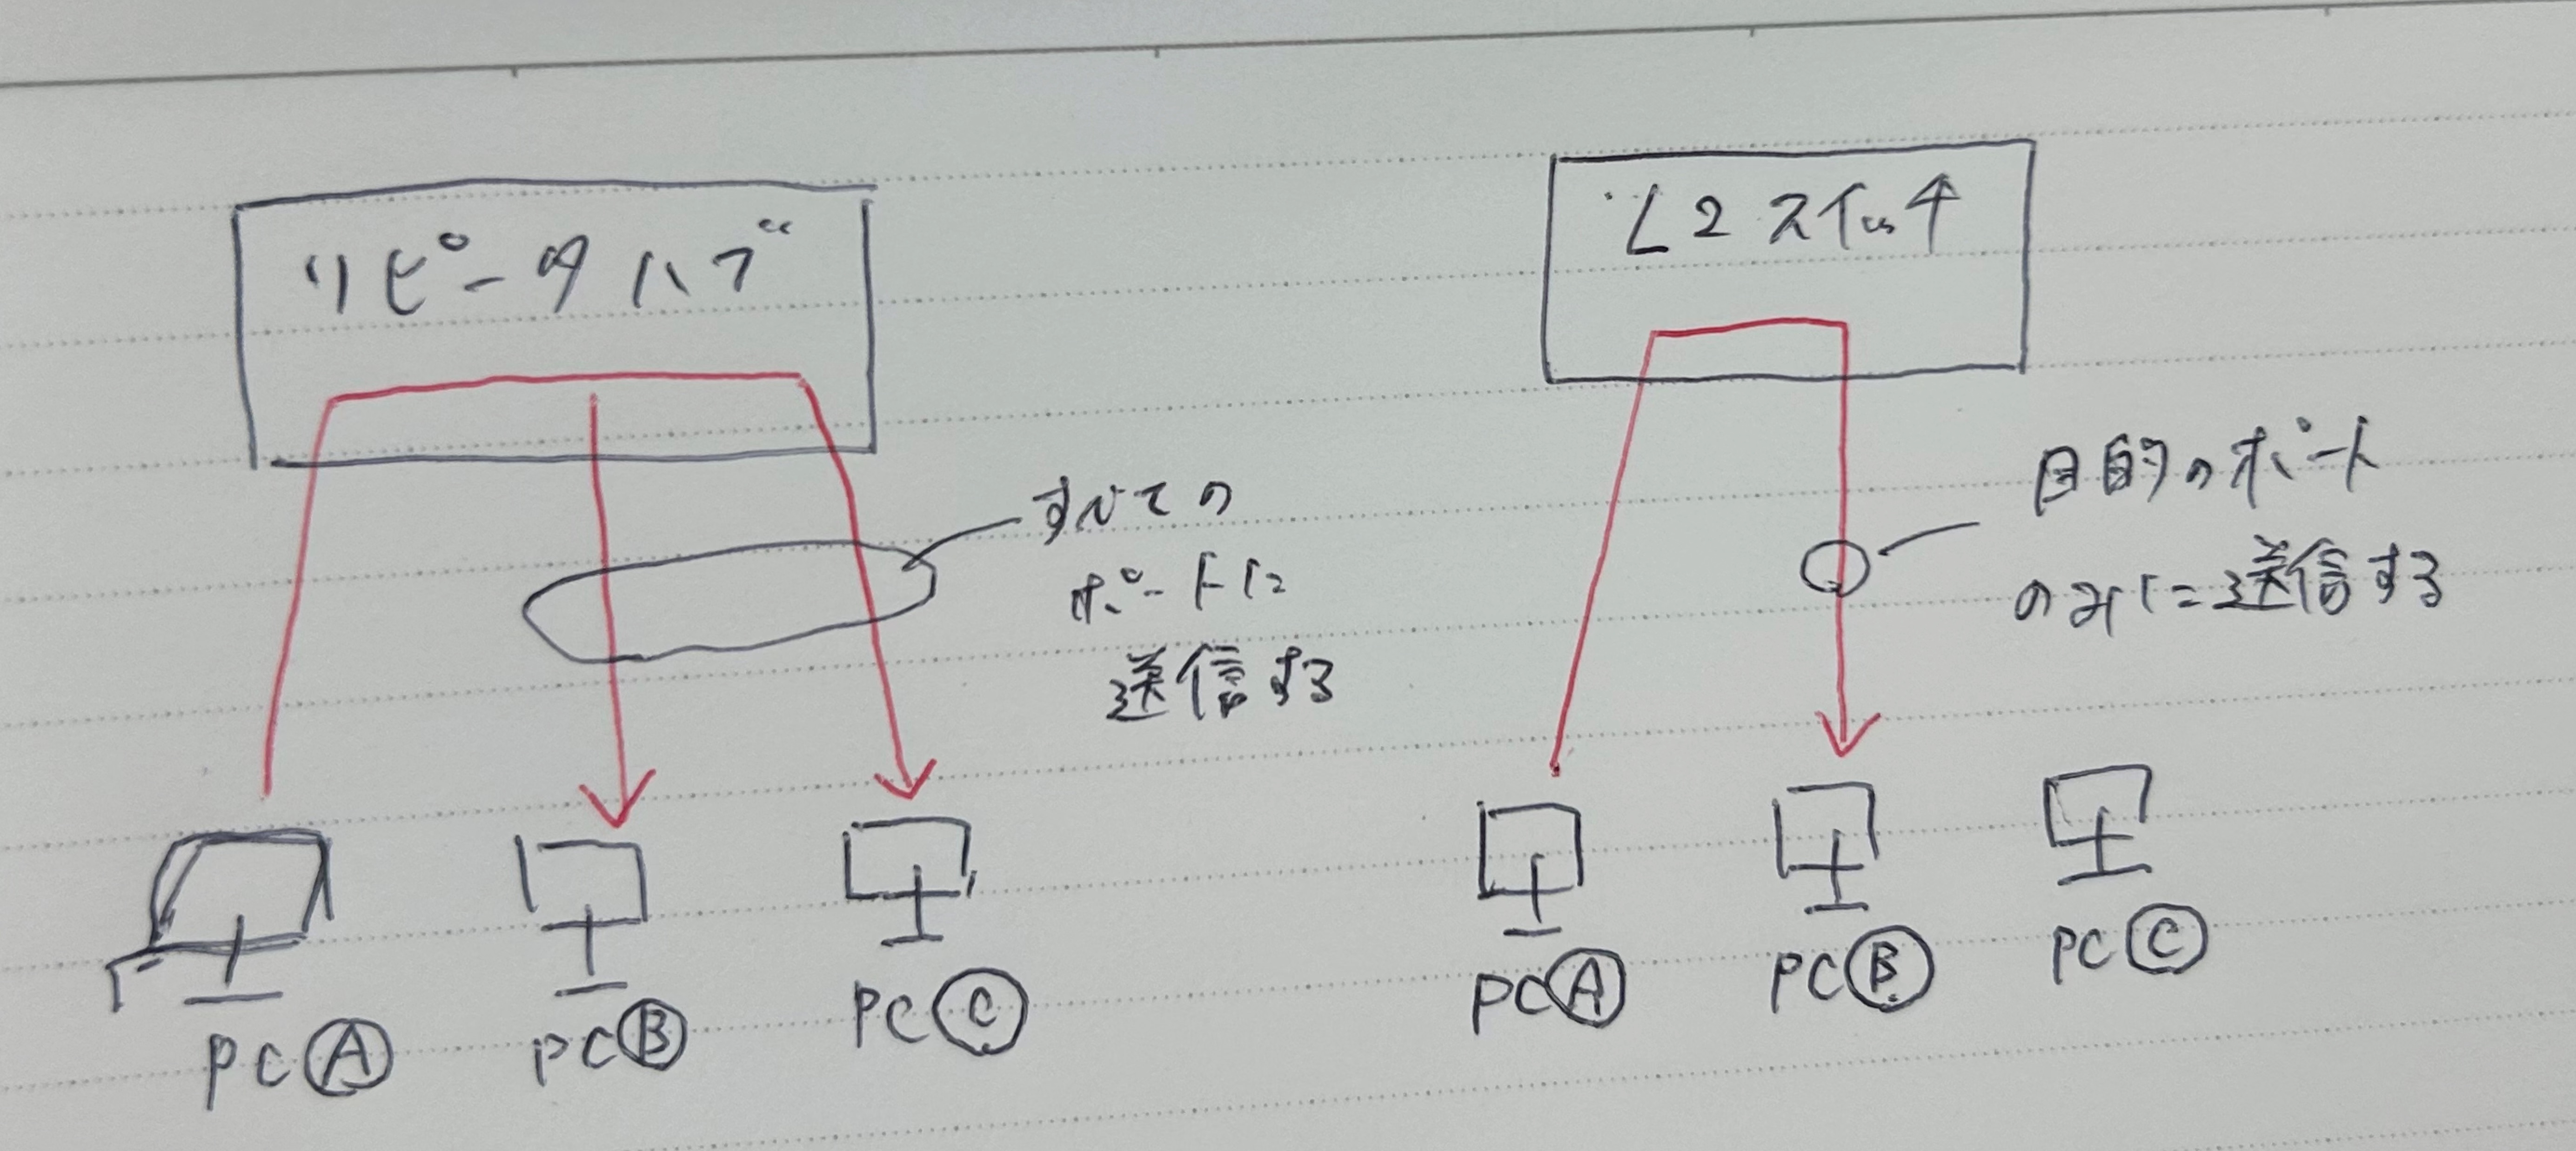 リピータハブ
すべての
ポートに
送信する
PCⒶ
PCⒷ
PCⒸ
L2スイッチ
目的のポート
のみに送信する
PCⒶ
PCⒷ
PCⒸ